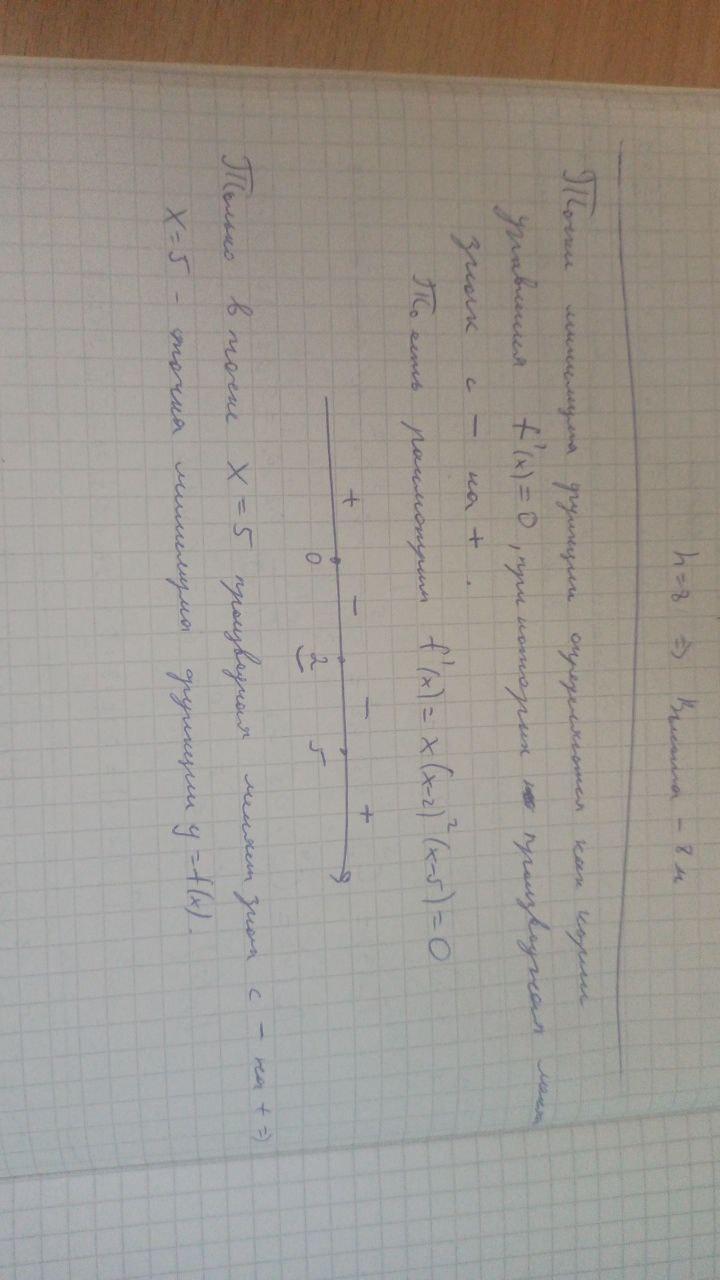 h=8 ⇒ – 8 м
Точки минимума функции определяются как корни
уравнения f'(x)=0, при которых производная меняет
знак с – на +.
То есть рассмотрим f'(x) = x(x-2)²(x-5) = 0
+ – – +
0 2 5
Только в точке x = 5 производная меняет знак с – на + ⇒
x=5 – точка минимума функции y=f(x).